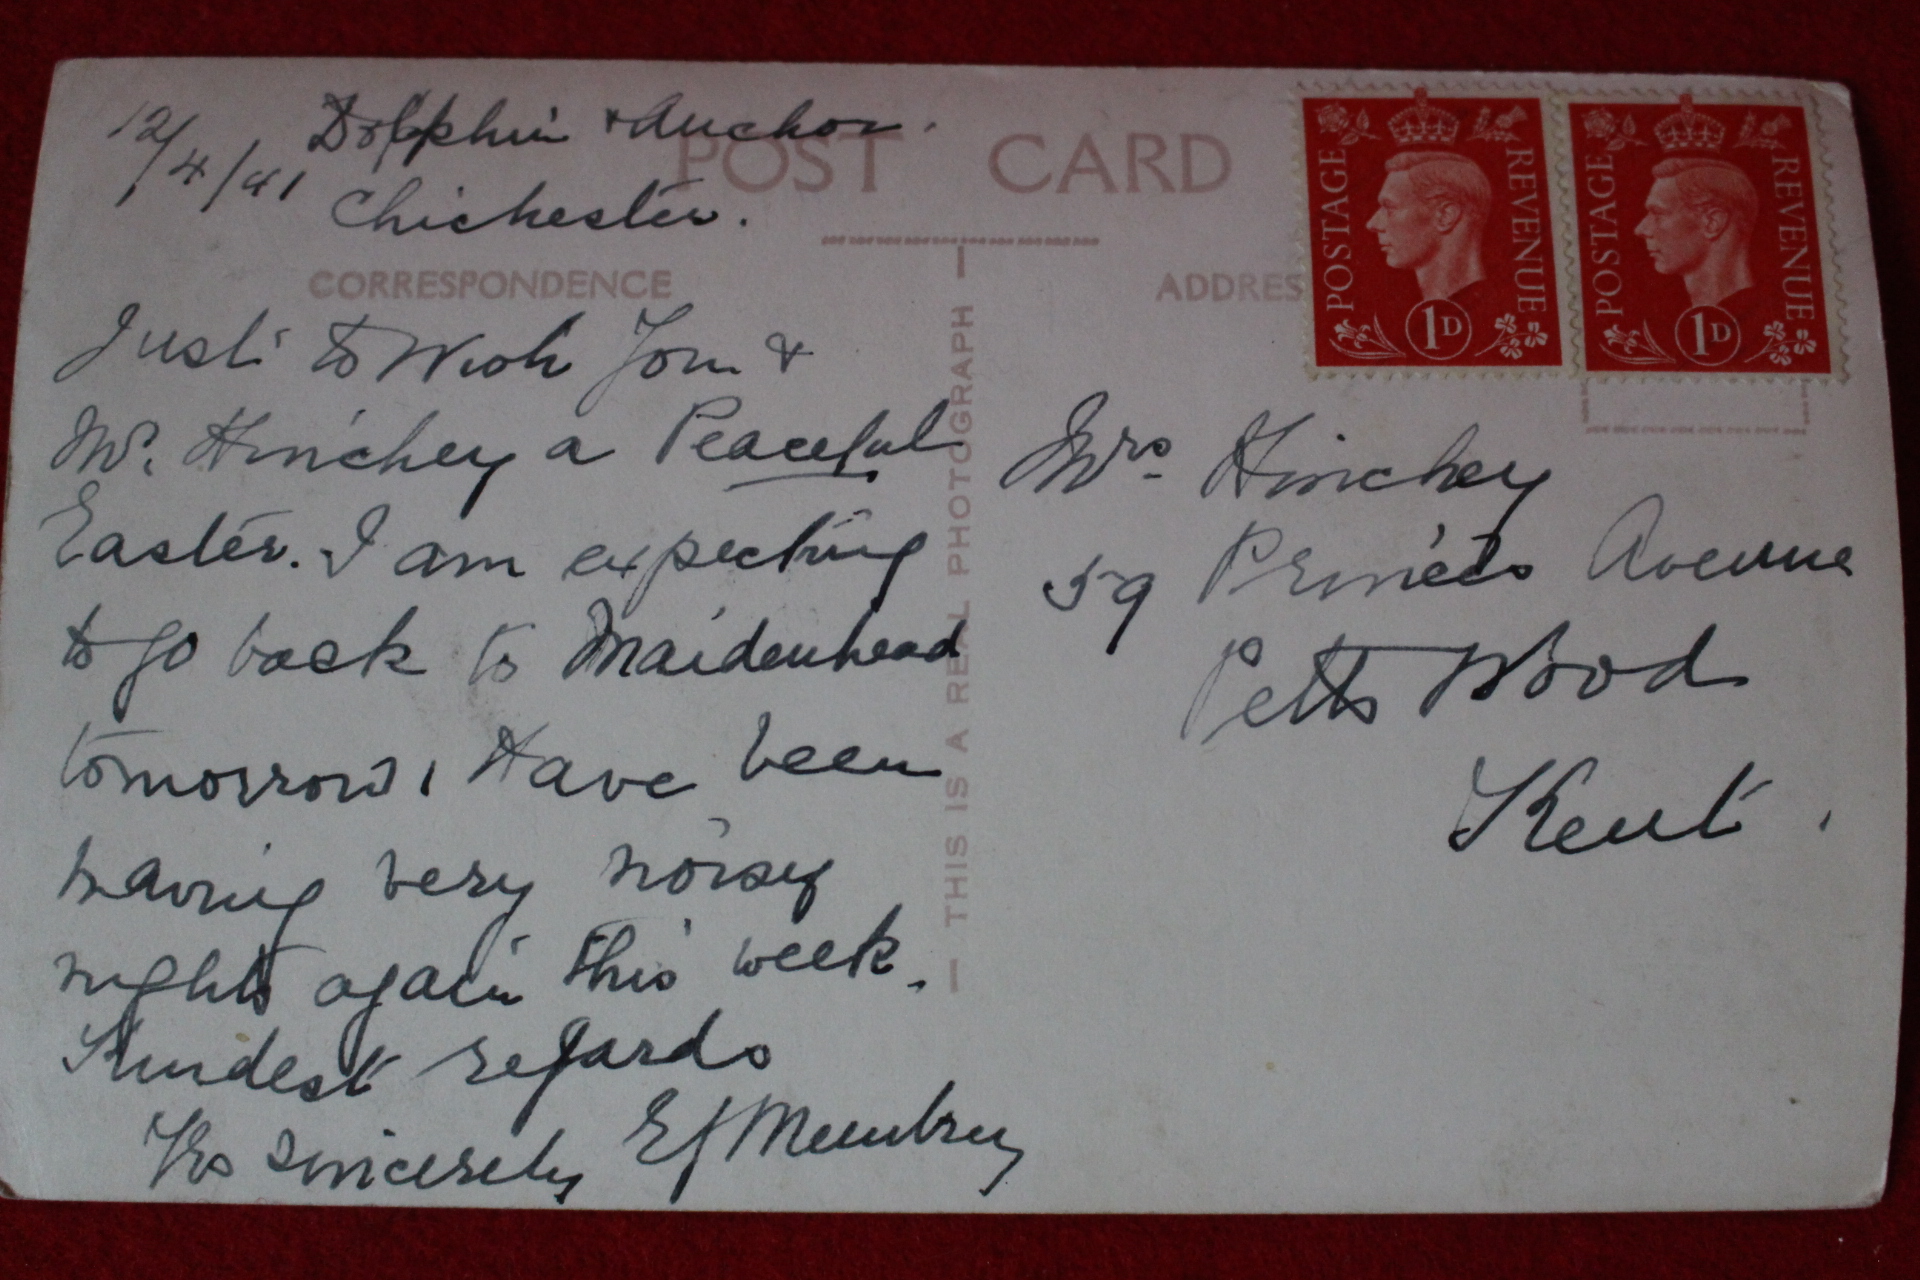 12/4/41 Dolphin & Anchor.
Chichester.
POST CARD
CORRESPONDENCE
ADDRES
POSTAGE REVENUE 1D
POSTAGE REVENUE 1D
Just to Wish You &
Mr. Hinchey a Peaceful
Easter. I am expecting
to go back to Maidenhead
tomorrow, Have been
having very noisy
nights again this week.
Kindest regards
Yrs sincerely EJ
— THIS IS A REAL PHOTOGRAPH —
Mrs Hinchey
59 Princes Avenue
Petts Wood
Kent.